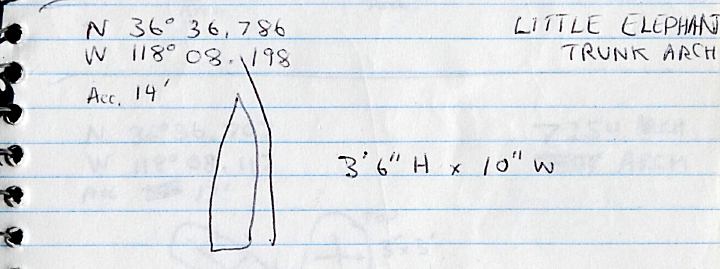 N 36° 36.786
W 118° 08.198
Acc. 14'
LITTLE ELEPHANT
TRUNK ARCH
3' 6" H x 10" W